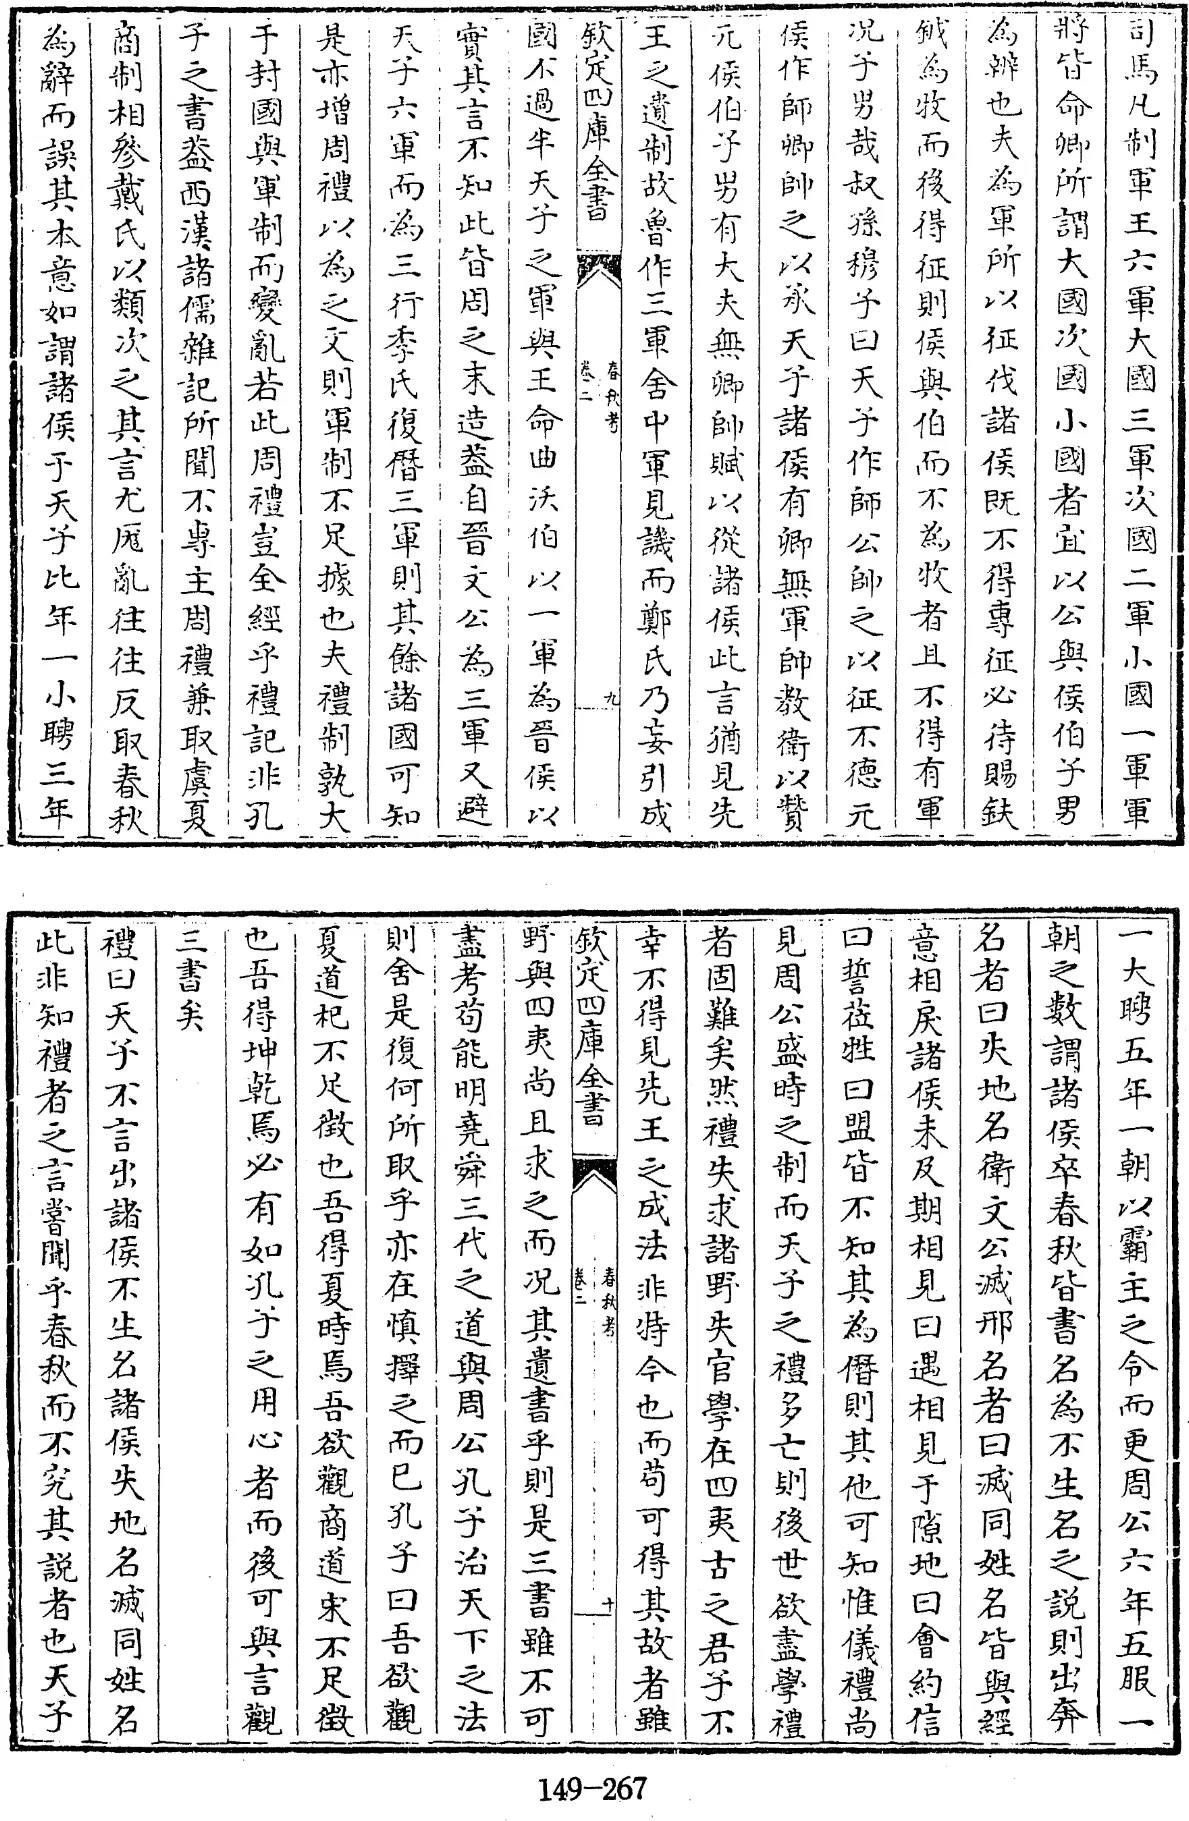 司馬凡制軍王六軍大國三軍次國二軍小國一軍軍
將皆命卿所謂大國次國小國者宜以公與侯伯子男
為辨也夫為軍所以征伐諸侯既不得專征必待賜鈇
鉞為牧而後得征則侯與伯而不為牧者且不得有軍
况子男哉叔孫穆子曰天子作師公帥之以征不德元
侯作師卿帥之以承天子諸侯有卿無軍帥教衛以贊
元侯伯子男有大夫無卿帥賦以從諸侯此言猶見先
王之遺制故魯作三軍舍中軍見譏而鄭氏乃妄引成
欽定四庫全書
春秋考
卷二
九
國不過半天子之軍與王命曲沃伯以一軍為晉侯以
實其言不知此皆周之末造葢自晉文公為三軍又避
天子六軍而為三行季氏復僭三軍則其餘諸國可知
是亦增周禮以為之文則軍制不足據也夫禮制孰大
于封國與軍制而變亂若此周禮豈全經乎禮記非孔
子之書葢西漢諸儒雜記所聞不專主周禮兼取虞夏
商制相參戴氏以類次之其言尤厖亂往往反取春秋
為辭而誤其本意如謂諸侯于天子比年一小聘三年
一大聘五年一朝以霸主之令而更周公六年五服一
朝之數謂諸侯卒春秋皆書名為不生名之説則出奔
名者曰失地名衛文公滅邢名者曰滅同姓名皆與經
意相戾諸侯未及期相見曰遇相見于隙地曰會約信
曰誓莅牲曰盟皆不知其為僭則其他可知惟儀禮尚
見周公盛時之制而天子之禮多亡則後世欲盡學禮
者固難矣然禮失求諸野失官學在四夷古之君子不
幸不得見先王之成法非特今也而苟可得其故者雖
欽定四庫全書
春秋考
卷二
十
野與四夷尚且求之而况其遺書乎則是三書雖不可
盡考苟能明堯舜三代之道與周公孔子治天下之法
則舍是復何所取乎亦在慎擇之而已孔子曰吾欲觀
夏道杞不足徵也吾得夏時焉吾欲觀商道宋不足徵
也吾得坤乾焉必有如孔子之用心者而後可與言觀
三書矣
禮曰天子不言出諸侯不生名諸侯失地名滅同姓名
此非知禮者之言嘗聞乎春秋而不究其説者也天子
149-267